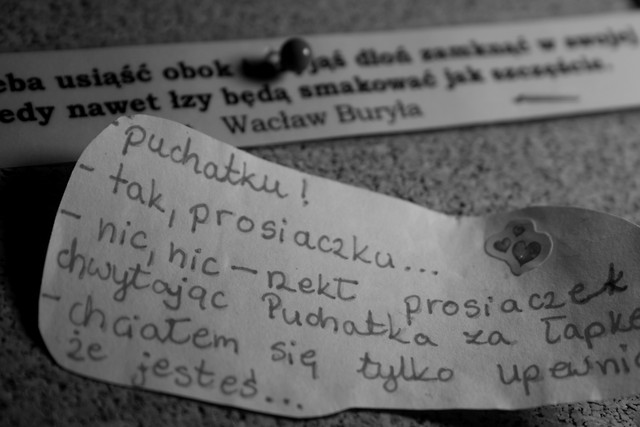 eba usiąść obok jąś dłoń zamknąć w swojej
edy nawet łzy będą smakować jak szczęście.
Wacław Buryła
- puchatku!
- tak, prosiaczku...
- nic, nic - rzekł prosiaczek
chwytając Puchatka za łapkę
- chciałem się tylko upewnić
że jesteś...